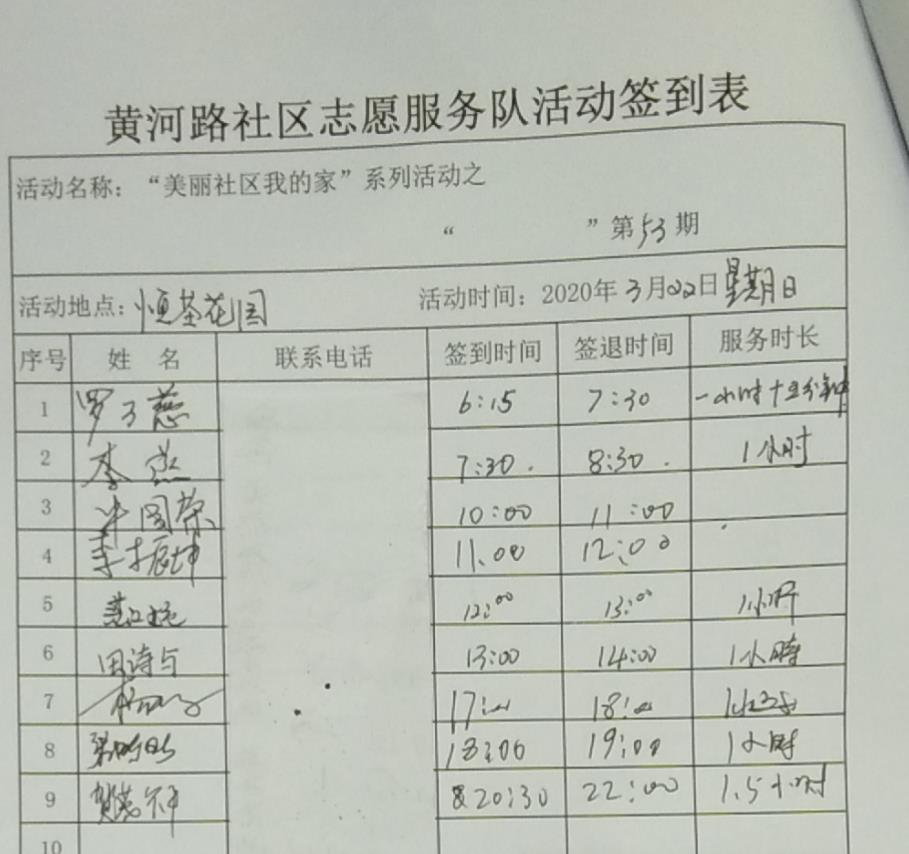 黄河路社区志愿服务队活动签到表
活动名称：“美丽社区我的家”系列活动之
“ ”第53期
活动地点：恒基花园 活动时间：2020年3月22日星期日
序号 姓名 联系电话 签到时间 签退时间 服务时长
1 罗子慈 6:15 7:30 一小时十五分钟
2 李燕 7:30. 8:30. 1小时
3 国荣 10:00 11:00
4 李振坤 11.00 12:00
5 12:00 13:00 1小时
6 田诗与 13:00 14:00 1小時
7 17:00 18:00
8 18:00 19:00 1小时
9 20:30 22:00 1.5小时
10